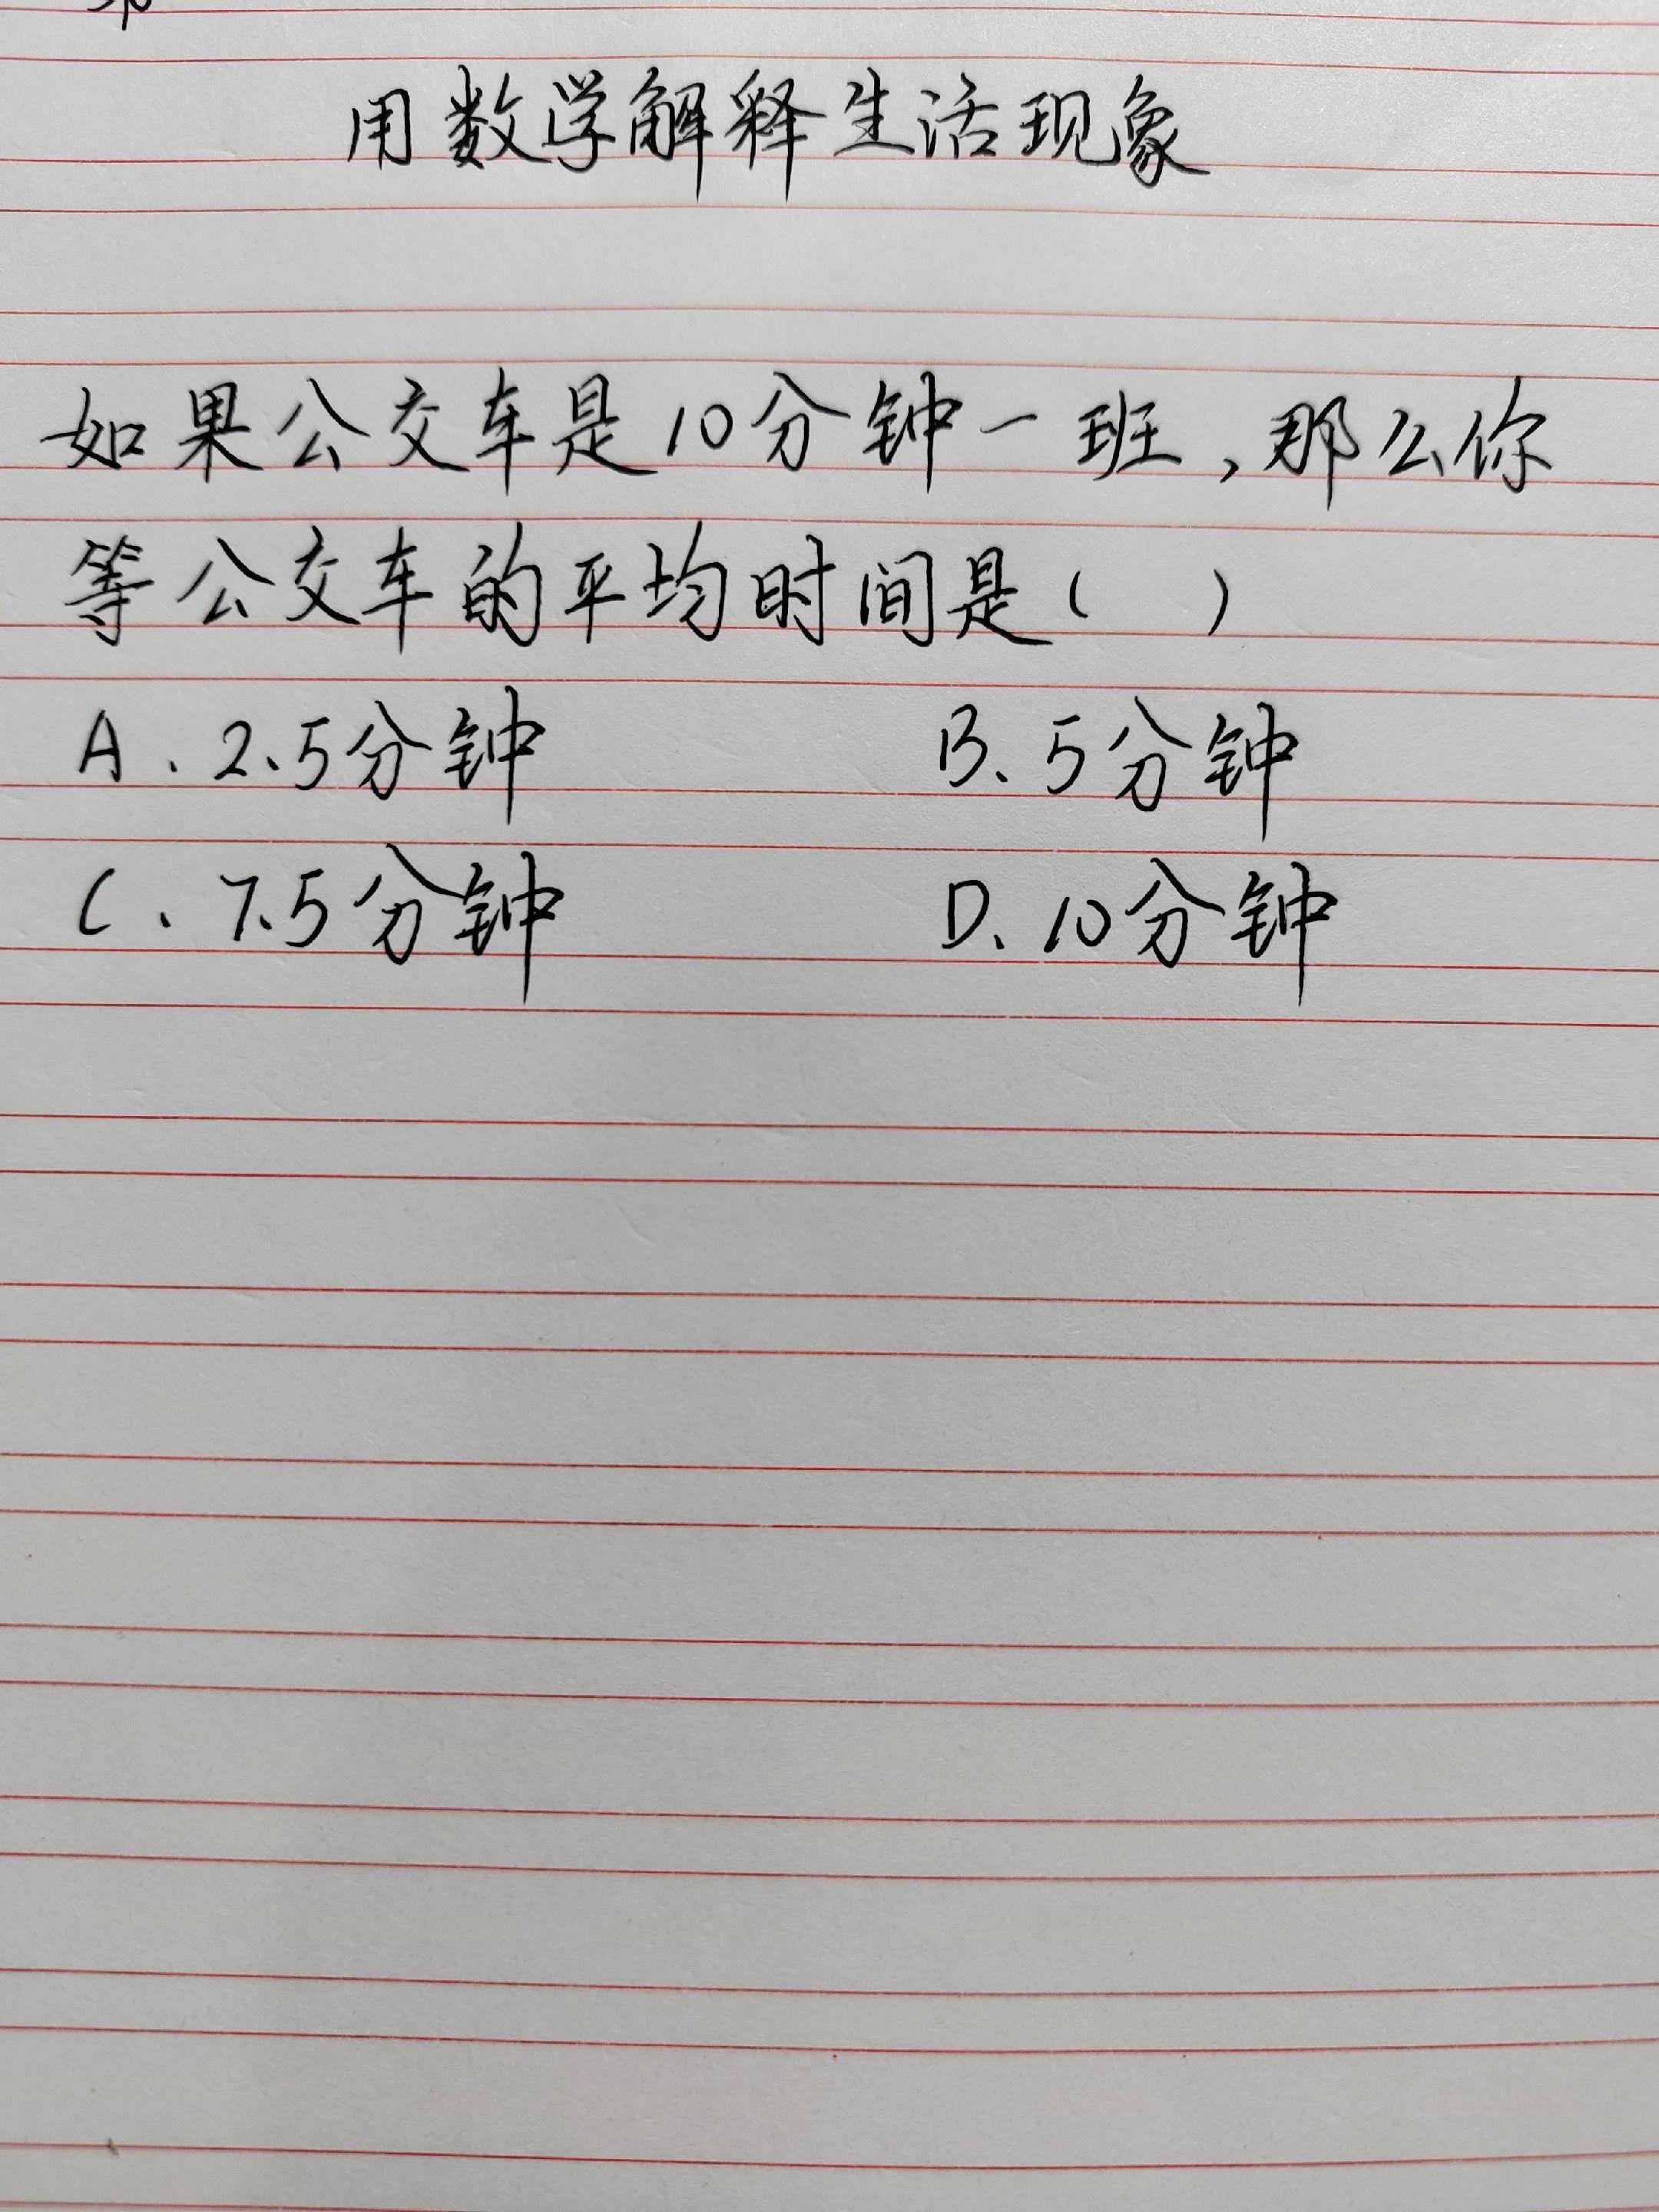 用数学解释生活现象
如果公交车是10分钟一班,那么你
等公交车的平均时间是( )
A、2.5分钟 B、5分钟
C、7.5分钟 D、10分钟